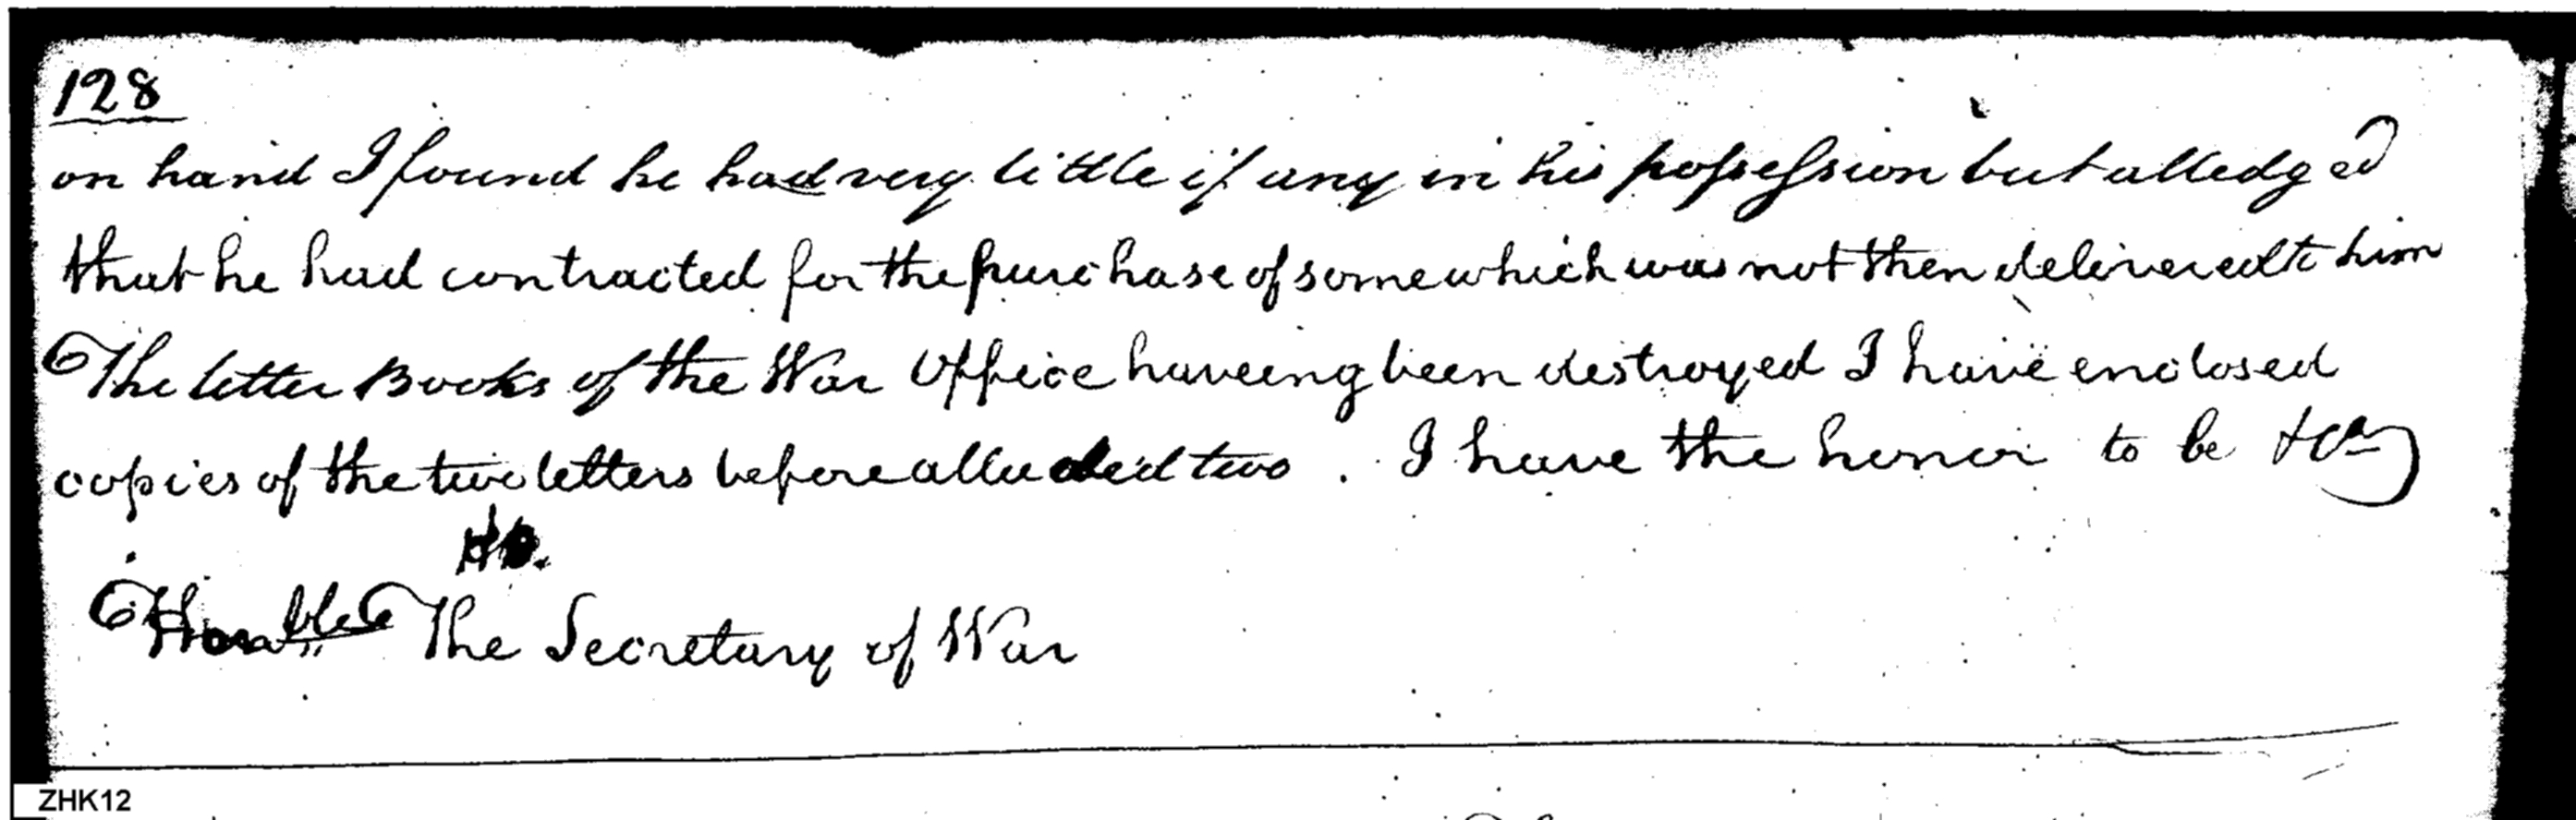 128
on hand I found he had very little if any in his possession but alledged
that he had contracted for the purchase of some which was not then delivered to him
The letter Books of the War Office haveing been destroyed I have enclosed
copies of the two letters before alluded two. I have the honor to be &Ca
Honble The Secretary of War
ZHK12